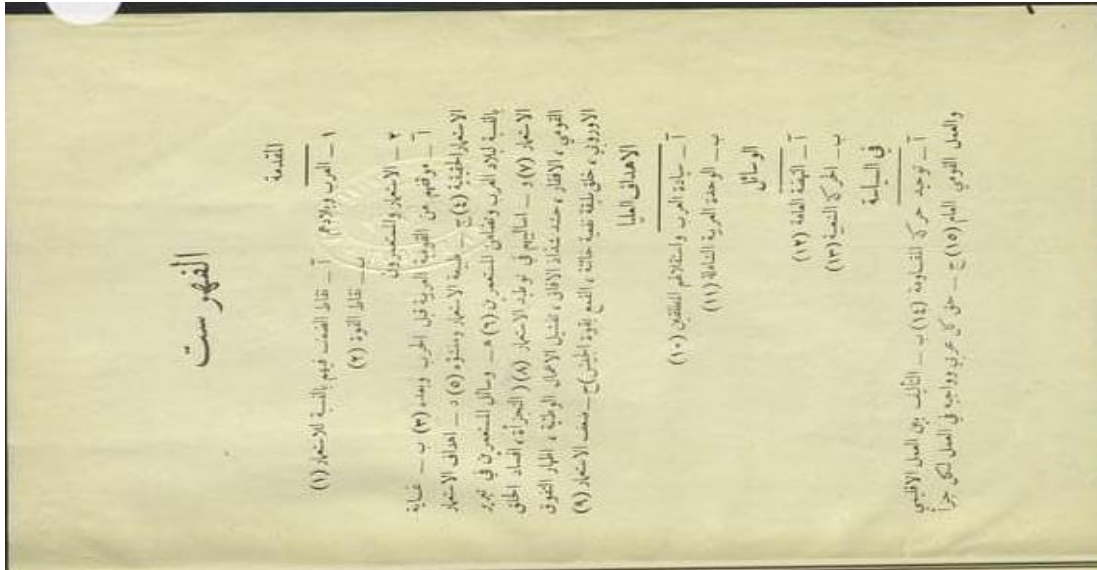 الفهرست
المقدمة
١ ـ العرب وبلادهم
آ ـ نقاط الضعف فيهم بالنسبة للاستعمار (١)
ب ـ نقاط القوة (٢)
٢ ـ الاستعمار والمستعمرون
آ ـ موقفهم من القومية العربية قبل الحرب وبعده (٣) ب ـ غاية
الاستعمار الحقيقية (٤) ج ـ طبيعة الاستعمار ومنشؤه (٥) د ـ اهداف الاستعمار
بالنسبة لبلاد العرب وتضامن المستعمرين (٦) هـ ـ وسائل المستعمرين في تبرير
الاستعمار (٧) و ـ اساليبهم في توطيد الاستعمار (٨) ( التجزأة ، افساد الخلق
القومي ، الافقار ، حشد شذاذ الافاق ، تفشيل الاعمال الوطنية ، اظهار التفوق
الاوروبي ، خلق طبقة نفعية خائنة ، القمع بقوة الجيش) ح ـ ضعف الاستعمار (٩)
الاهداف العليا
آ ـ سيادة العرب واستقلالهم المطلقين (١٠)
ب ـ الوحدة العربية الشاملة (١١)
الوسائل
آ ـ النهضة العامة (١٢)
ب ـ الحركة الشعبية (١٣)
في السياسة
آ ـ توحيد حركة المقاومة (١٤) ب ـ التأليف بين العمل الاقليمي
والعمل القومي العام (١٥) ج ـ حق كل عربي وواجبه في العمل لكل جزأ